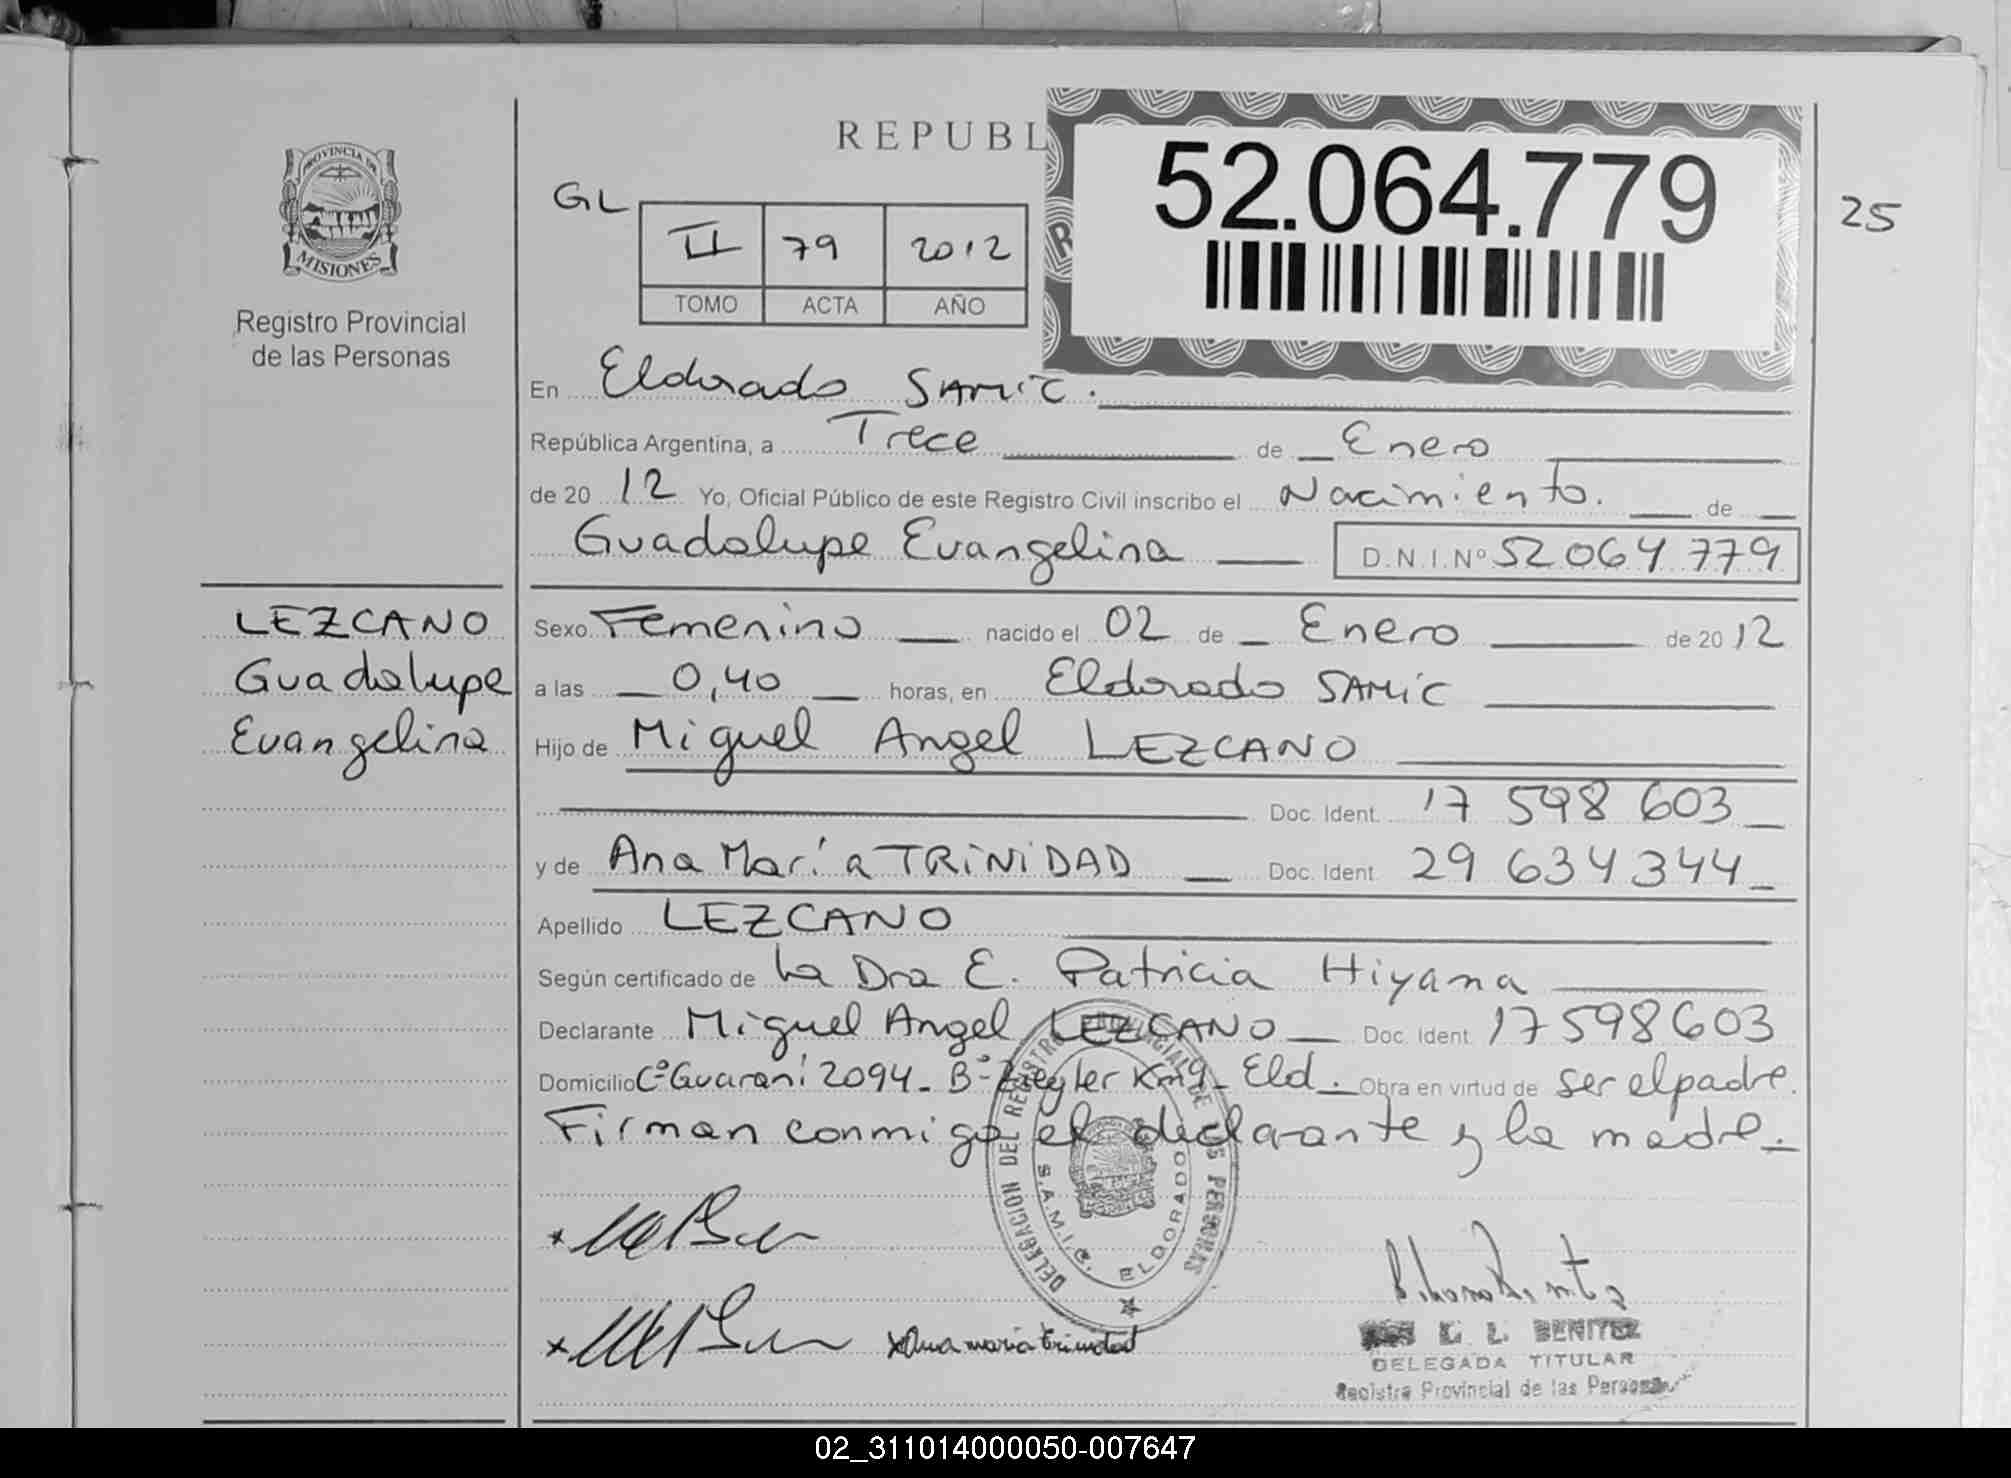 PROVINCIA DE
MISIONES
Registro Provincial
de las Personas
REPUBL
52.064.779
25
GL
II 79 2012
TOMO ACTA AÑO
En Eldorado SAMIC.
República Argentina, a Trece de Enero
de 20 12 Yo, Oficial Público de este Registro Civil inscribo el Nacimiento. de
Guadalupe Evangelina D.N.I.Nº 52 064 779
LEZCANO
Guadalupe
Evangelina
Sexo Femenino nacido el 02 de Enero de 20 12
a las 0,40 horas, en Eldorado SAMIC
Hijo de Miguel Angel LEZCANO
Doc. Ident. 17 598 603
y de Ana María TRINIDAD Doc. Ident. 29 634 344
Apellido LEZCANO
Según certificado de la Dra E. Patricia Hiyama
Declarante Miguel Angel LEZCANO Doc. Ident. 17598603
Domicilio Cº Guaraní 2094 - Bº Ziegler Km 9 - Eld. Obra en virtud de ser el padre.
Firman conmigo el declarante y la madre.
DELEGACION DEL REGISTRO PROVINCIAL DE LAS PERSONAS
S.A.M.I.C. ELDORADO
x Ana maria trinidad
L. BENITEZ
DELEGADA TITULAR
Registro Provincial de las Personas
02_311014000050-007647